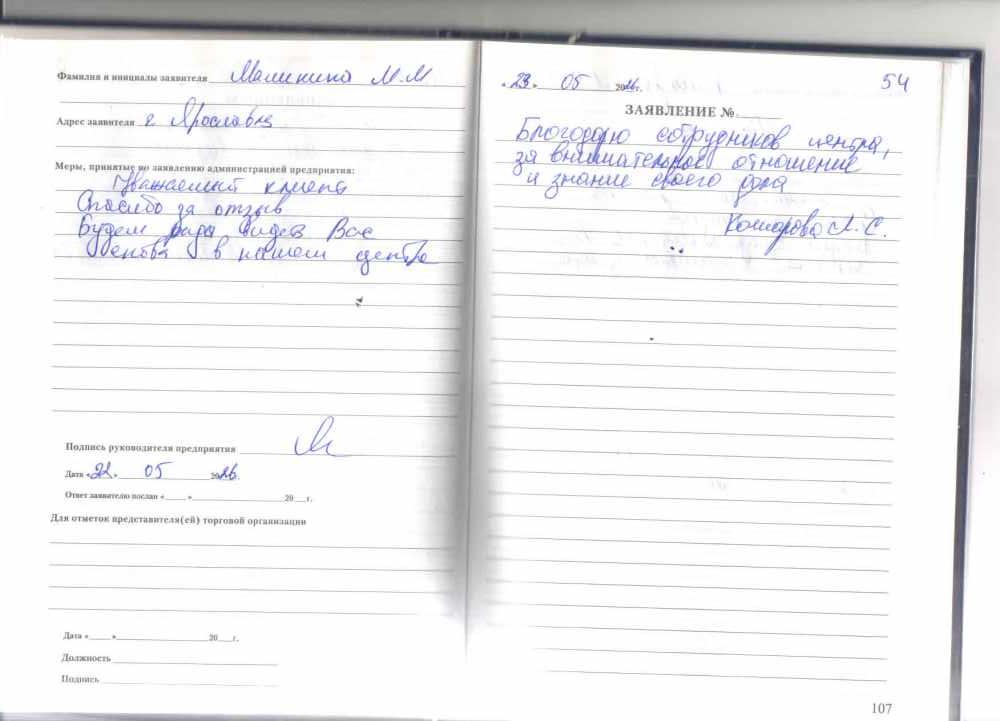 Фамилия и инициалы заявителя Малинина М.М
Адрес заявителя г. Ярославль
Меры, принятые по заявлению администрацией предприятия:
Уважаемый клиент
Спасибо за отзыв
Будем рады видеть Вас
снова в нашем центре
Подпись руководителя предприятия
Дата «22» 05 2026.
Ответ заявителю послан «____»____ 20__г.
Для отметок представителя(ей) торговой организации
Дата «____»____ 20__г.
Должность
Подпись
«23» 05 2026г. 54
ЗАЯВЛЕНИЕ №
Благодарю сотрудников центра,
за внимательное отношение
и знание своего дела
Комарова Л.С.
107